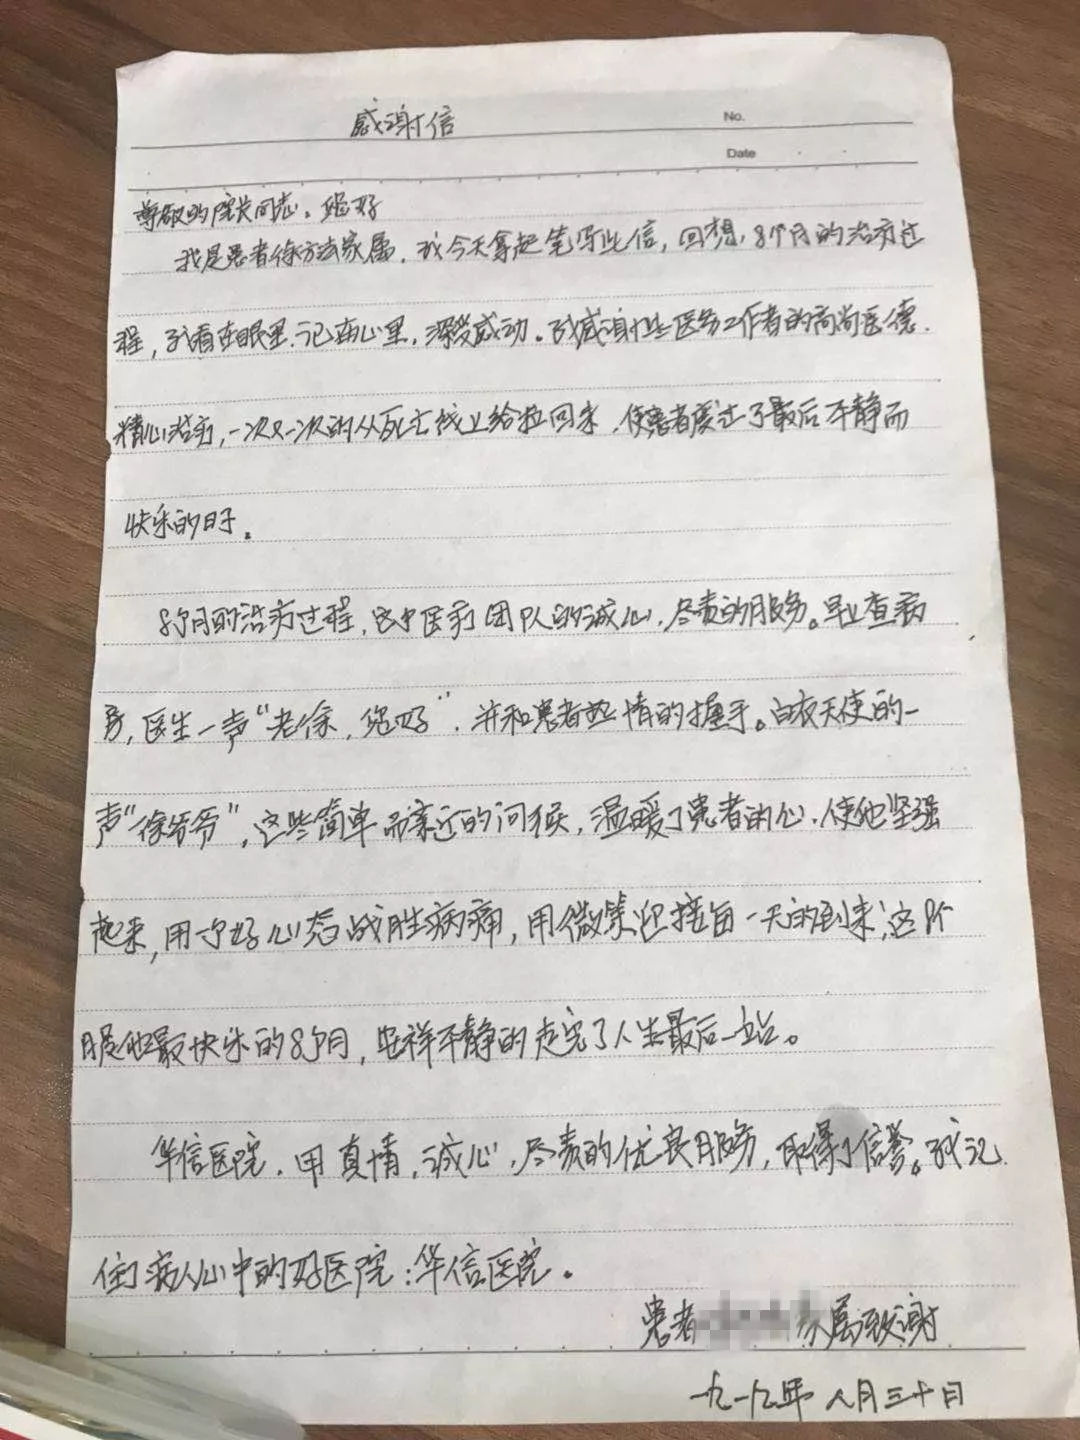 感谢信
No.
Date
尊敬的院长同志,您好
我是患者徐方法家属,我今天拿起笔写此信,回想,8个月的治病过
程,我看在眼里.记在心里,深受感动。我感谢这些医务工作者的高尚医德.
精心治病,一次又一次的从死亡线上给拉回来,使患者度过了最后平静而
快乐的日子。
8个月的治病过程,这中医疗团队的诚心,尽责的服务。早上查病
房,医生一声“老徐,您好”,并和患者热情的握手。白衣天使的一
声“徐爷爷”,这些简单而亲近的问候,温暖了患者的心.使他坚强
起来,用一个好心态战胜病痛,用微笑迎接每一天的到来,这8个
月是他最快乐的8个月,安祥平静的走完了人生最后一站。
华信医院.用真情,诚心,尽责的优良服务,取得了信誉。我记
住了病人心中的好医院:华信医院。
患者 家属致谢
一九年八月三十日